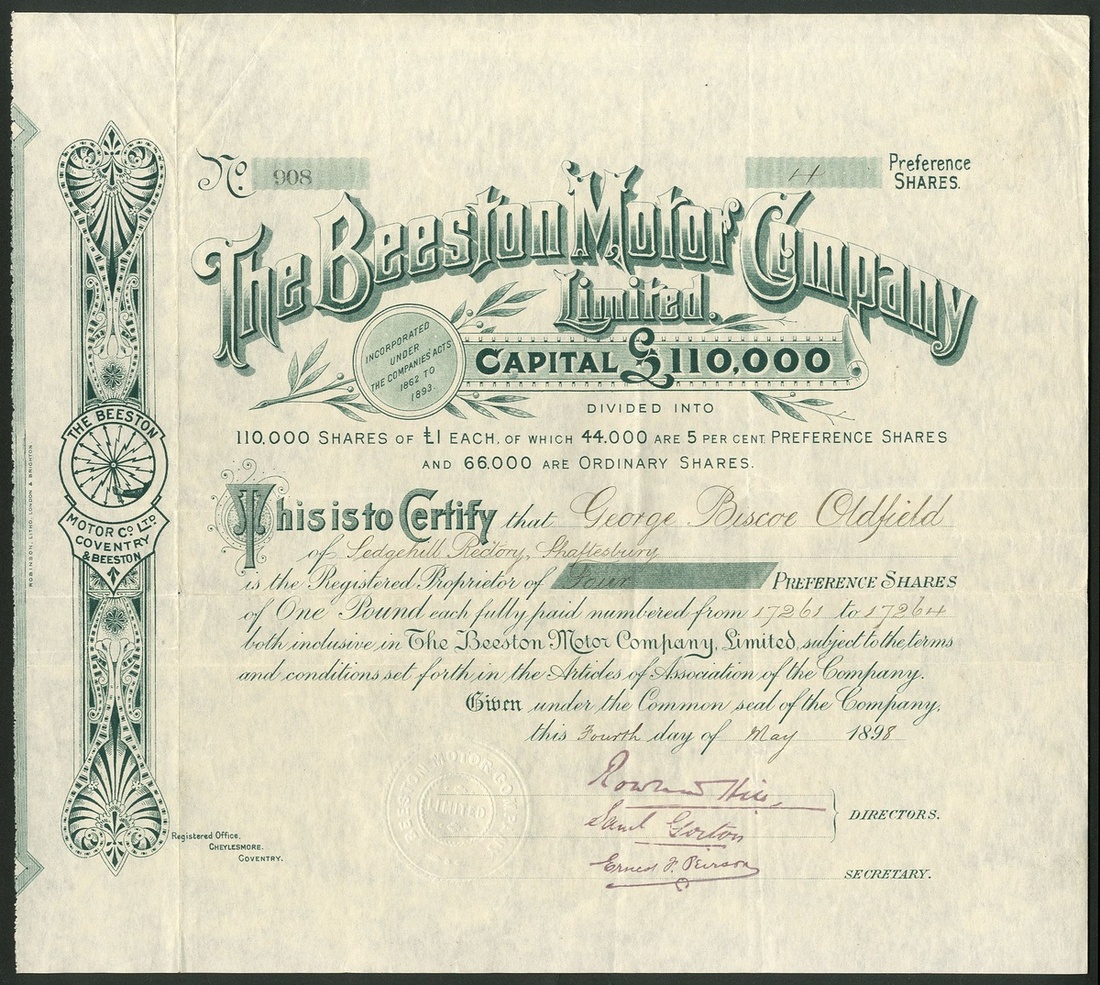 No. 908
4 Preference
SHARES.
The Beeston Motor Company
Limited.
INCORPORATED
UNDER
THE COMPANIES' ACTS
1862 TO
1893.
CAPITAL £110,000
DIVIDED INTO
110,000 SHARES OF £1 EACH, OF WHICH 44,000 ARE 5 PER CENT. PREFERENCE SHARES
AND 66,000 ARE ORDINARY SHARES.
This is to Certify that George Biscoe Oldfield
of Sedgehill Rectory, Shaftesbury
is the Registered Proprietor of Four PREFERENCE SHARES
of One Pound each fully paid numbered from 17261 to 17264
both inclusive in The Beeston Motor Company, Limited, subject to the terms
and conditions set forth in the Articles of Association of the Company.
Given under the Common seal of the Company,
this Fourth day of May 1898
Rowland Hill,
Saml Gorton
DIRECTORS.
Ernest F. Peirson
SECRETARY.
BEESTON MOTOR CO
LIMITED
Registered Office,
CHEYLESMORE.
COVENTRY.
THE BEESTON
MOTOR CO LTD
COVENTRY
& BEESTON
ROBINSON, LITHO, LONDON & BRIGHTON